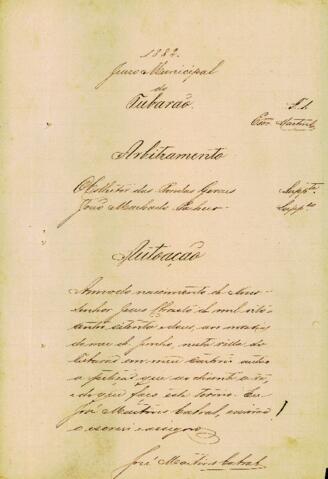 1882.
Juizo Municipal
do
Tubarão.
F. 1.
Esm. Martins
Arbitramento
O Collector das Rendas Geraes Suppte.
João Machado Suppdo.
Autoação
Anno do nascimento de Nosso
Senhor Jesus Christo de mil oito
centos oitenta e dous, aos
do mez de Junho, nesta villa do
Tubarão em meu Cartorio autuo
a petição que ao diante se vê,
e do que faço este termo. Eu
José Martins Cabral, escrivão
o escrevi e assigno.
José Martins Cabral